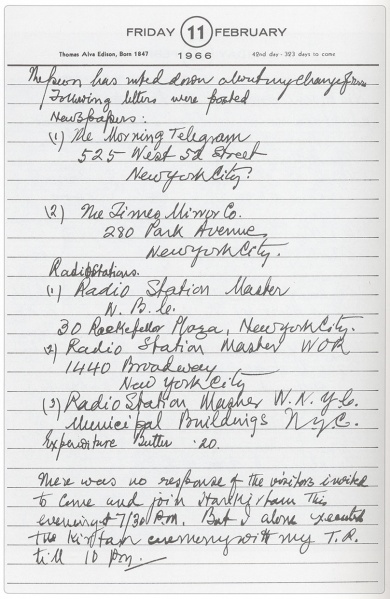 FRIDAY 11 FEBRUARY
Thomas Alva Edison, Born 1847 1966 42nd day - 323 days to come
The person has noted down about my change of
Following letters were posted
Newspapers:
(1) The Morning Telegram
525 West 52 Street
New York City.
(2) The Times Mirror Co.
280 Park Avenue,
New York City.
Radio Stations.
(1) Radio Station Master
N.B.C.
30 Rockefellor Plaza, New York City.
2) Radio Station Master WOR
1440 Broadway
New York City
(3) Radio Station Master W.N.Y.C.
Municipal Buildings N.Y.C.
Expenditure Butter .20.
There was no response of the visitors invited
to come and join Harikirtam this
evening at 7/30 P.M. But I alone executed
the Kirtan ceremony with my T.R.
till 10 p.m.